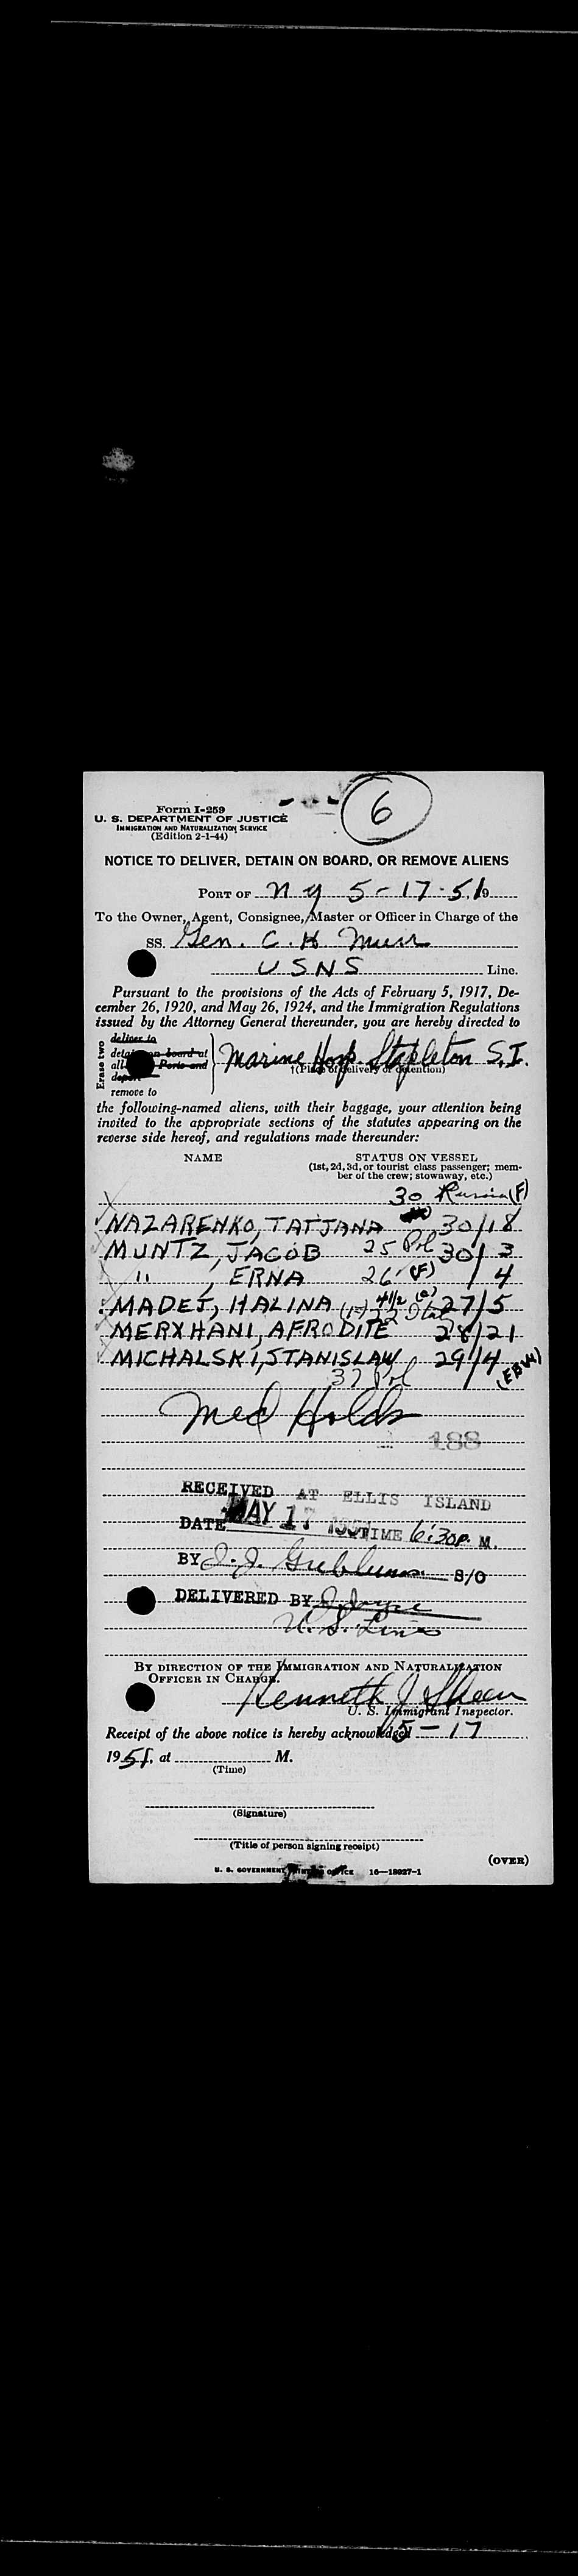 6
Form I-259
U. S. DEPARTMENT OF JUSTICE
IMMIGRATION AND NATURALIZATION SERVICE
(Edition 2-1-44)
NOTICE TO DELIVER, DETAIN ON BOARD, OR REMOVE ALIENS
PORT OF N Y 5-17-51, 19
To the Owner, Agent, Consignee, Master or Officer in Charge of the
SS. Gen. C. H Muir
USNS Line.
Pursuant to the provisions of the Acts of February 5, 1917, De-
cember 26, 1920, and May 26, 1924, and the Immigration Regulations
issued by the Attorney General thereunder, you are hereby directed to
Erase two
deliver to
detain on board at
all Ports and
deport
remove to
Marine Hosp. Stapleton S.I.
†(Place of delivery or detention)
the following-named aliens, with their baggage, your attention being
invited to the appropriate sections of the statutes appearing on the
reverse side hereof, and regulations made thereunder:
NAME STATUS ON VESSEL
(1st, 2d, 3d, or tourist class passenger; mem-
ber of the crew; stowaway, etc.)
30 Russia (F)
NAZARENKO, TATJANA 30/18
MUNTZ, JACOB 25 Pol 30/3
" , ERNA 26 (F) /4
MADEJ, HALINA 4 1/2 27/5
MERXHANI, AFRODITE 28/21
MICHALSKI, STANISLAW 29/4 (EBW)
37 Pol
Med Holds
188
RECEIVED AT ELLIS ISLAND
DATE MAY 17 1951 TIME 6:30P. M.
BY S/O
DELIVERED BY
U.S. Lines
BY DIRECTION OF THE IMMIGRATION AND NATURALIZATION
OFFICER IN CHARGE.
Kenneth J Sheen
U. S. Immigrant Inspector.
Receipt of the above notice is hereby acknowledged 5-17
1951, at M.
(Time)
(Signature)
(Title of person signing receipt)
(OVER)
U. S. GOVERNMENT PRINTING OFFICE 16—18927-1